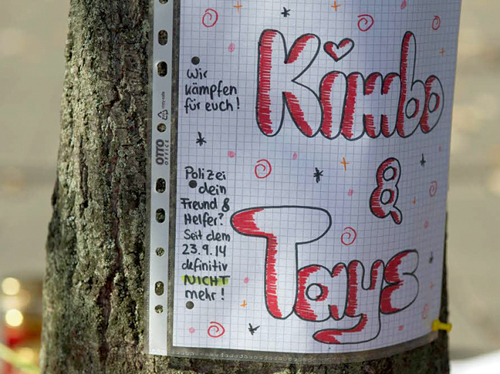 Wir
kämpfen
für euch!
Kimbo
&
Taye
Polizei
dein
Freund &
Helfer?
Seit dem
23.9.14
definitiv
NICHT
mehr!
OTTO